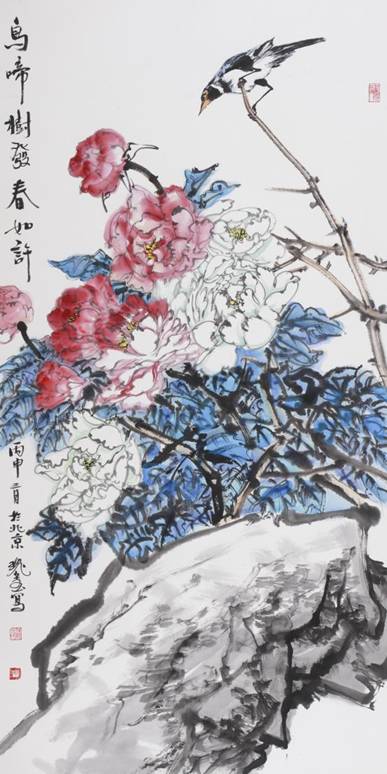 鳥啼樹發春如許
丙申二月於北京寫